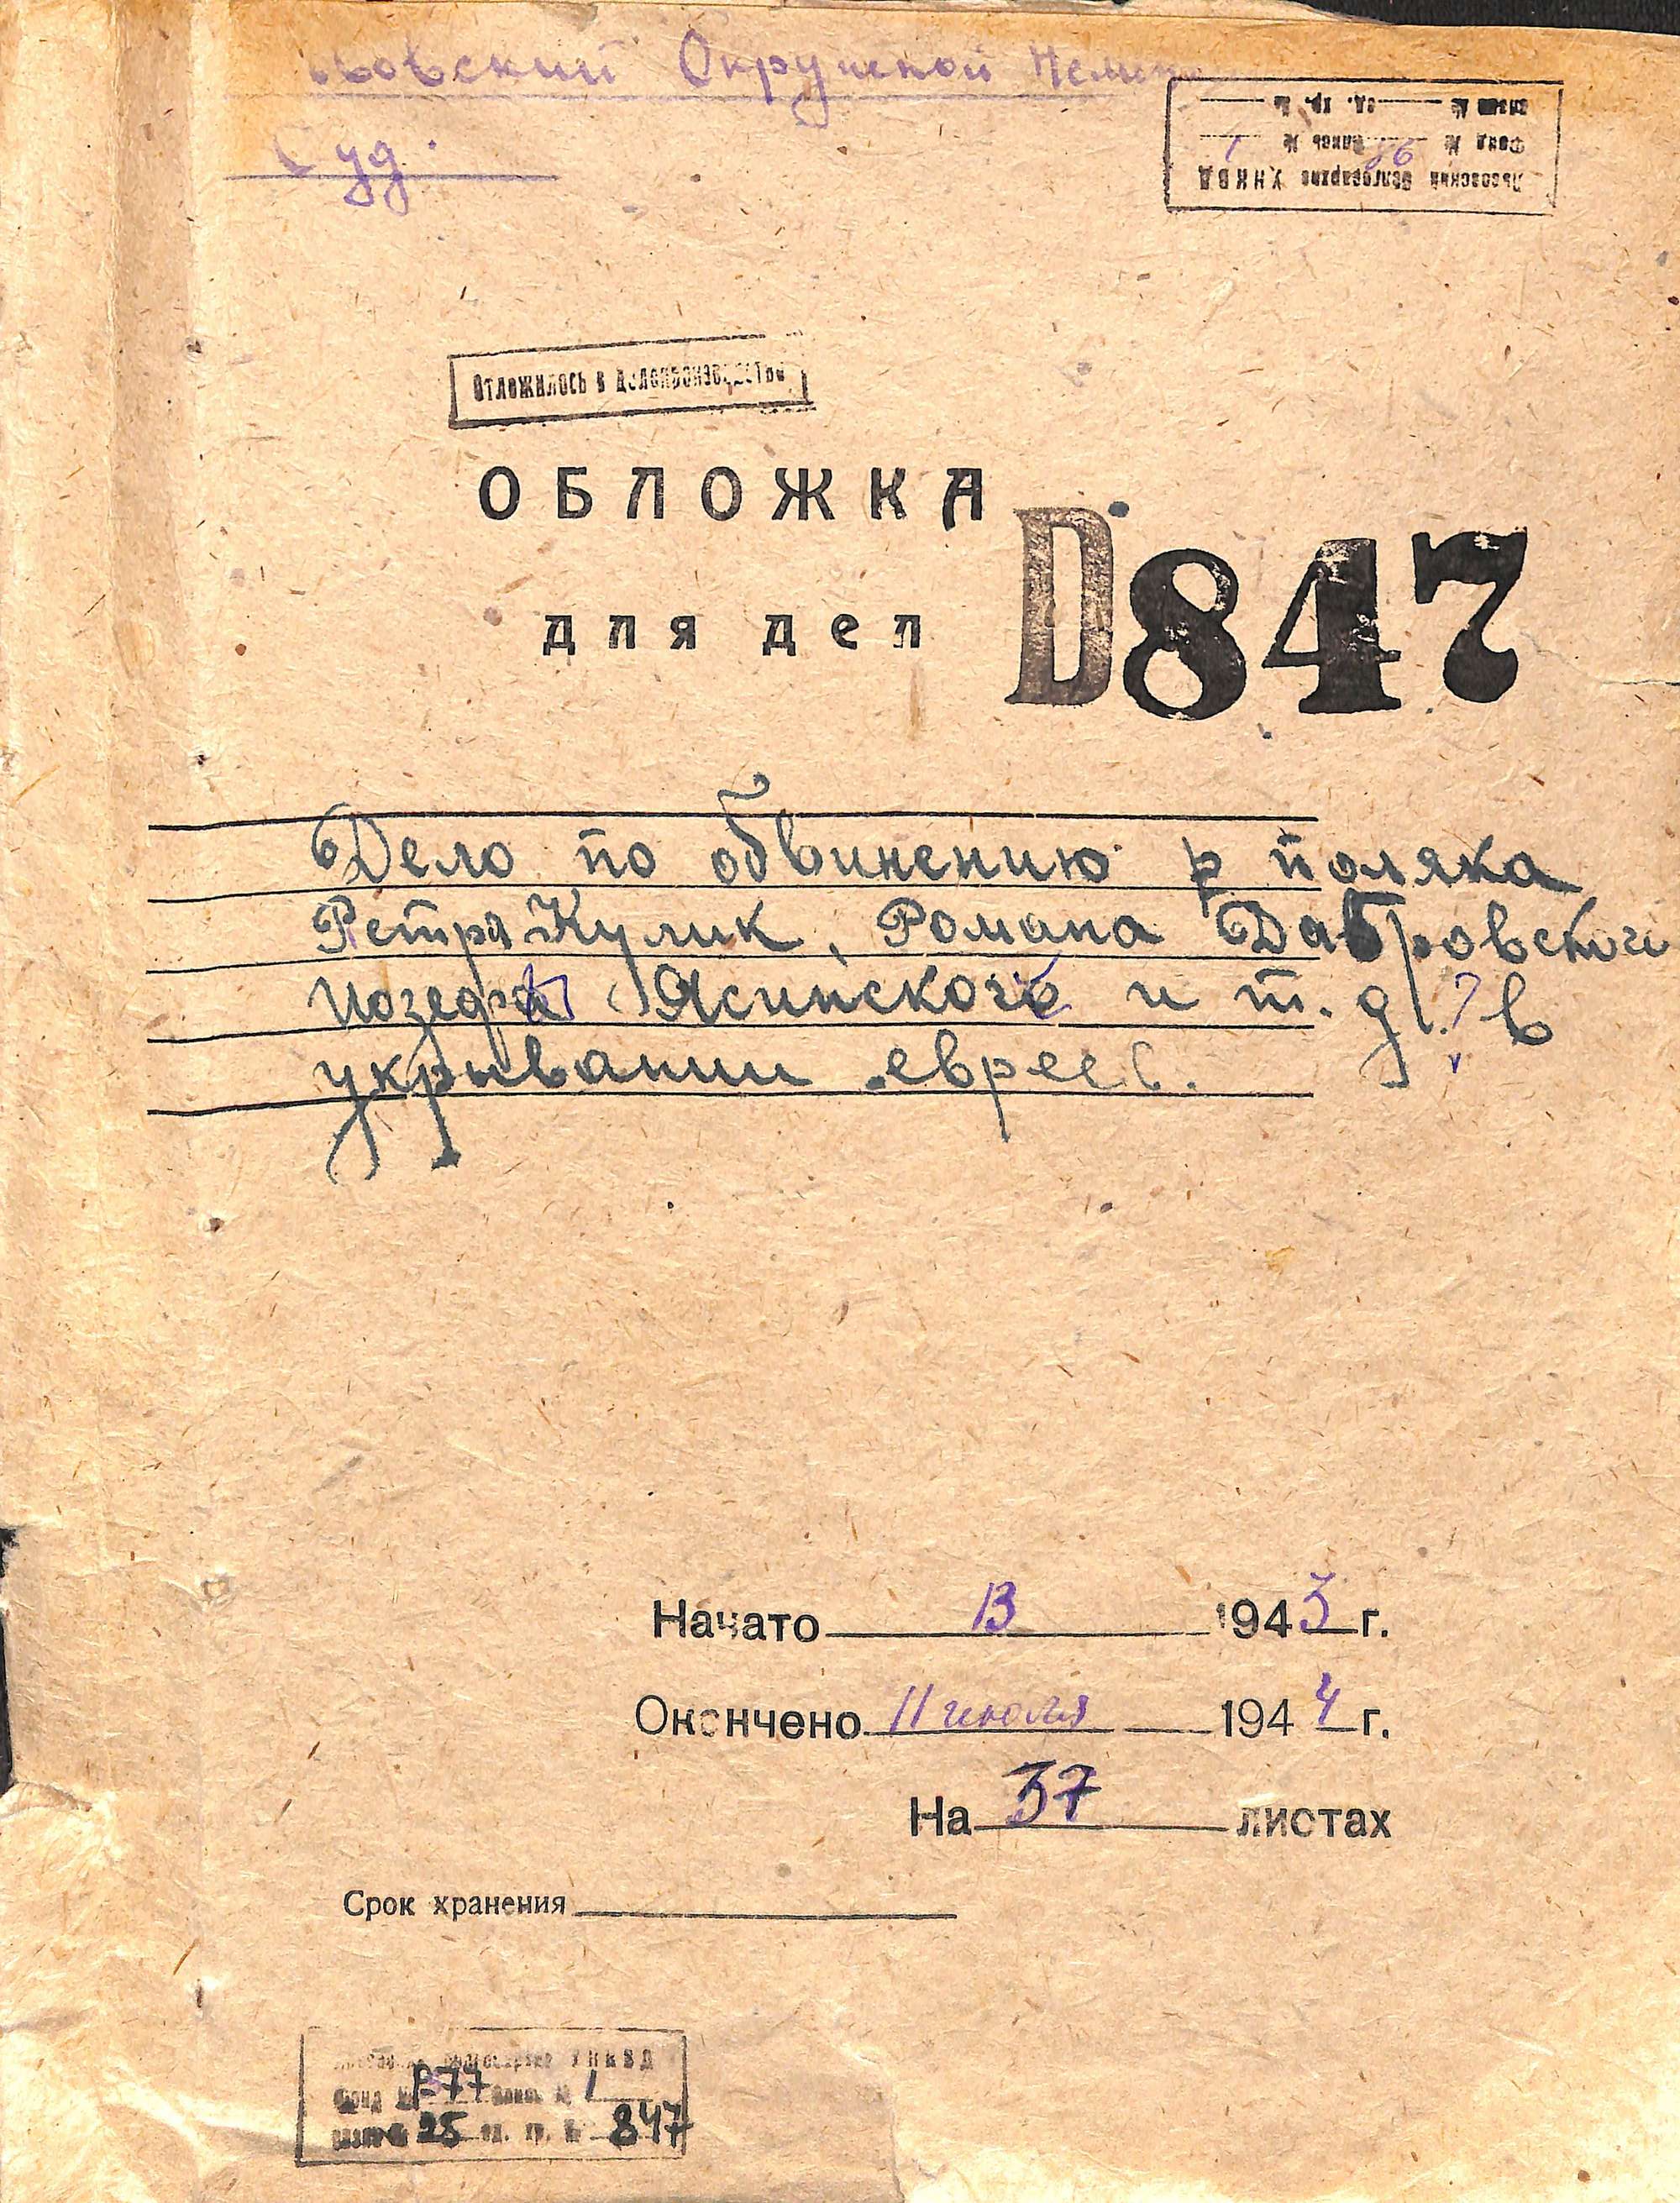 Окружной
Суд.
Львовский Облгосархив УНКВД
Фонд № Опись №
ед. хр. №
Отложилось в делопроизводстве
ОБЛОЖКА
для дел
D847
Дело по обвинению поляка
Петра Кулик, Романа Дабровского
Иозефа Ясинского и т. д. ? в
укрывании евреев.
Начато 13 1943 г.
Окончено 11 июля 1944 г.
На 37 листах
Срок хранения
Облгосархив УНКВД
Фонд № Р-77 Опись № 1
25 ед. хр. № 847